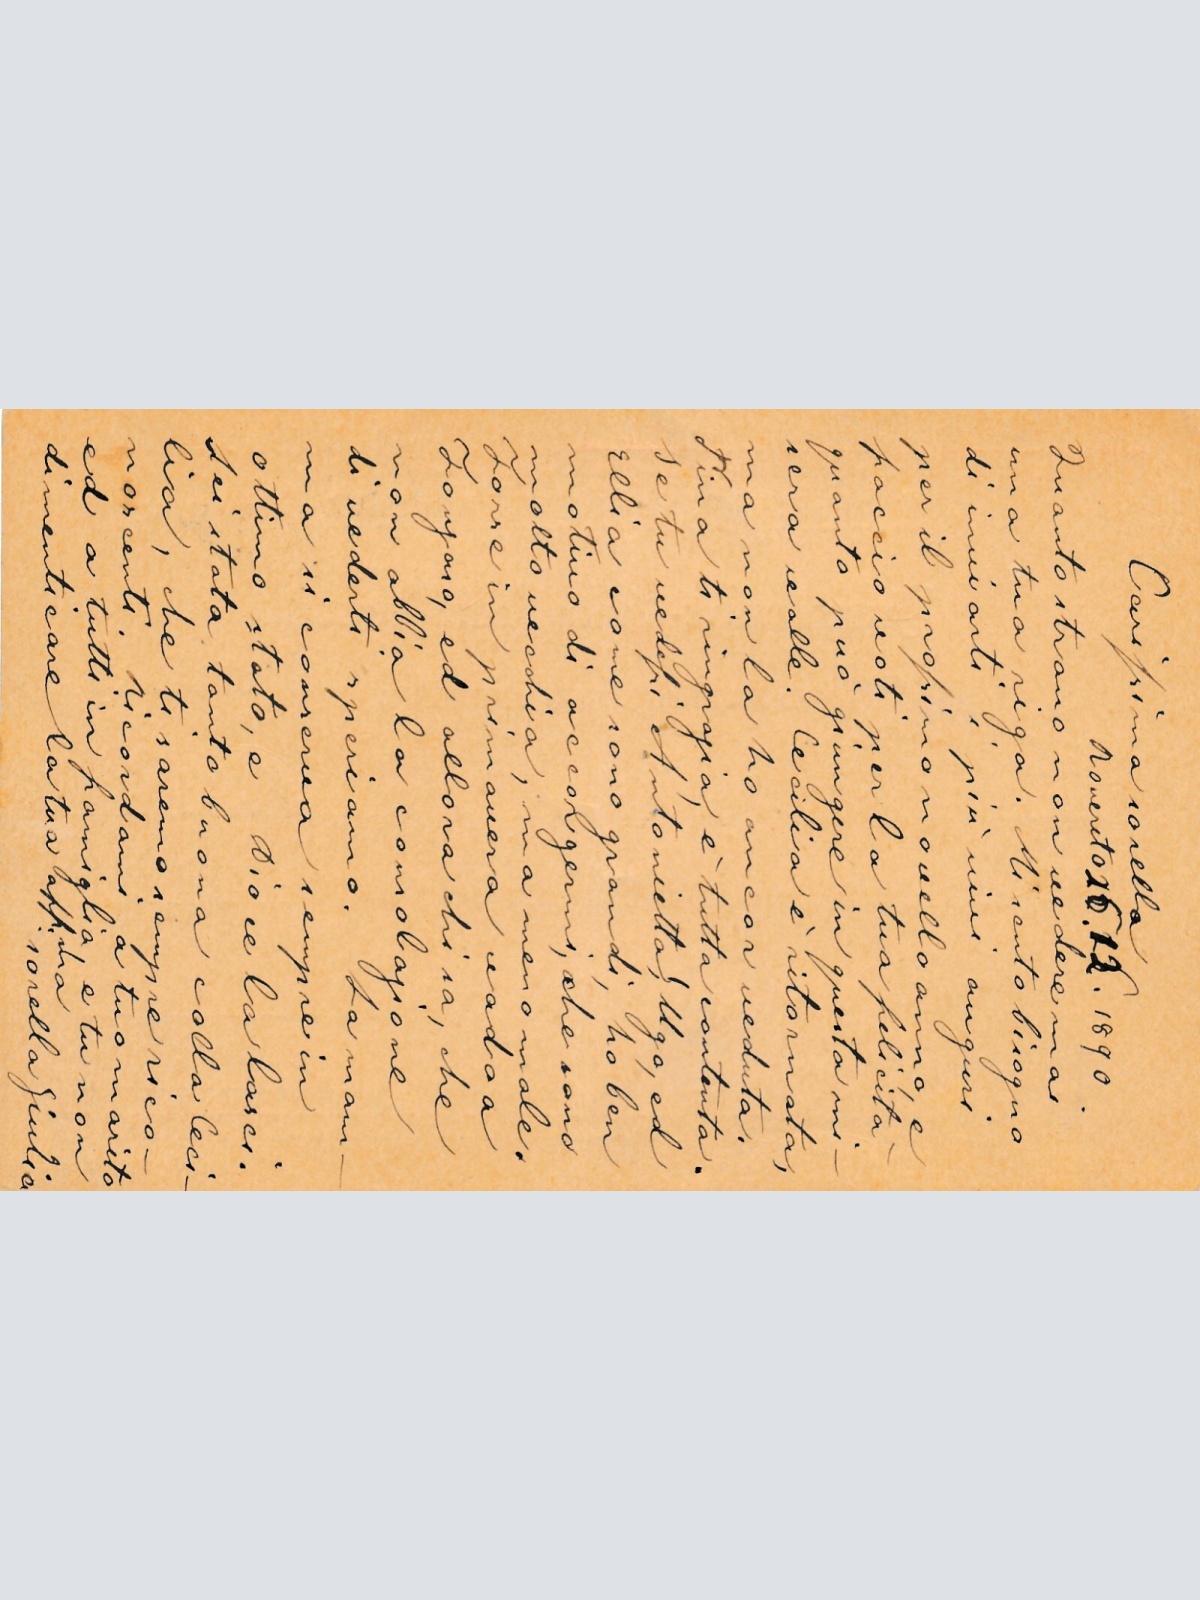 Carissima sorella
Rovereto 26.12.1890.
Quanto strano non vedere mai
una tua riga. Mi sento bisogno
di inviarti i più vivi auguri
per il prossimo novello anno, e
faccio voti per la tua felicità
quanto può giungere in questa mi-
sera valle. Cecilia è ritornata,
ma non la ho ancor veduta.
Fina ti ringrazia, è tutta contenta.
Se tu vedessi Antonietta, Ugo, ed
Ellia come sono grandi, ho ben
motivo di accorgermi, che sono
molto vecchia, ma meno male.
Forse in primavera vado a
Fongaso, ed allora chi sà, che
non abbia la consolazione
di vederti speriamo. La mam-
ma si conserva sempre in
ottimo stato, e Dio ce la lasci.
Sei stata tanto buona colla Ceci-
lia, che ti saremo sempre rico-
noscenti. Ricordami a tuo marito
ed a tutti in famiglia e tu non
dimenticare la tua affma
sorella Giulia